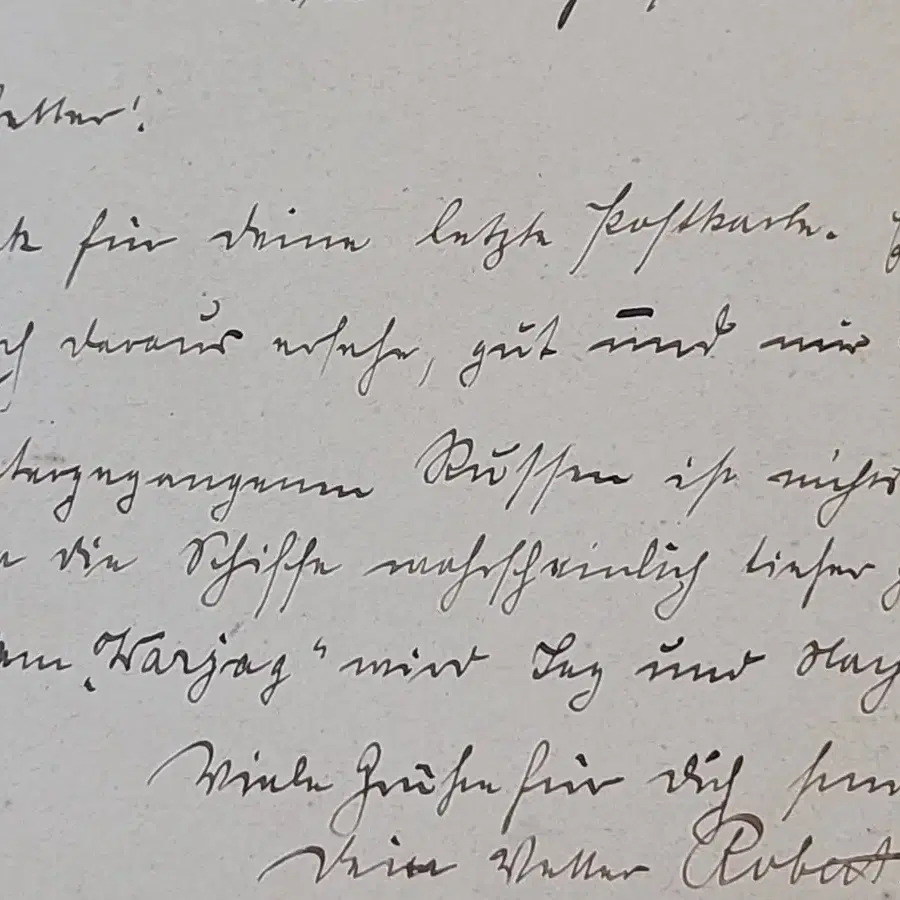 Vetter!
für deine letzte Postkarte.
ich daraus ersehe, gut und nur
untergegangenen Russen ist nichts
die Schiffe wahrscheinlich tiefer
am „Warjag“ wird Tag und Nach
Viele Grüße für Dich
Dein Vetter Robert